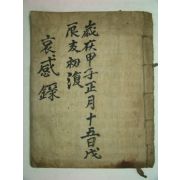 歲在甲子正月十五日戊
辰亥初復
哀感錄